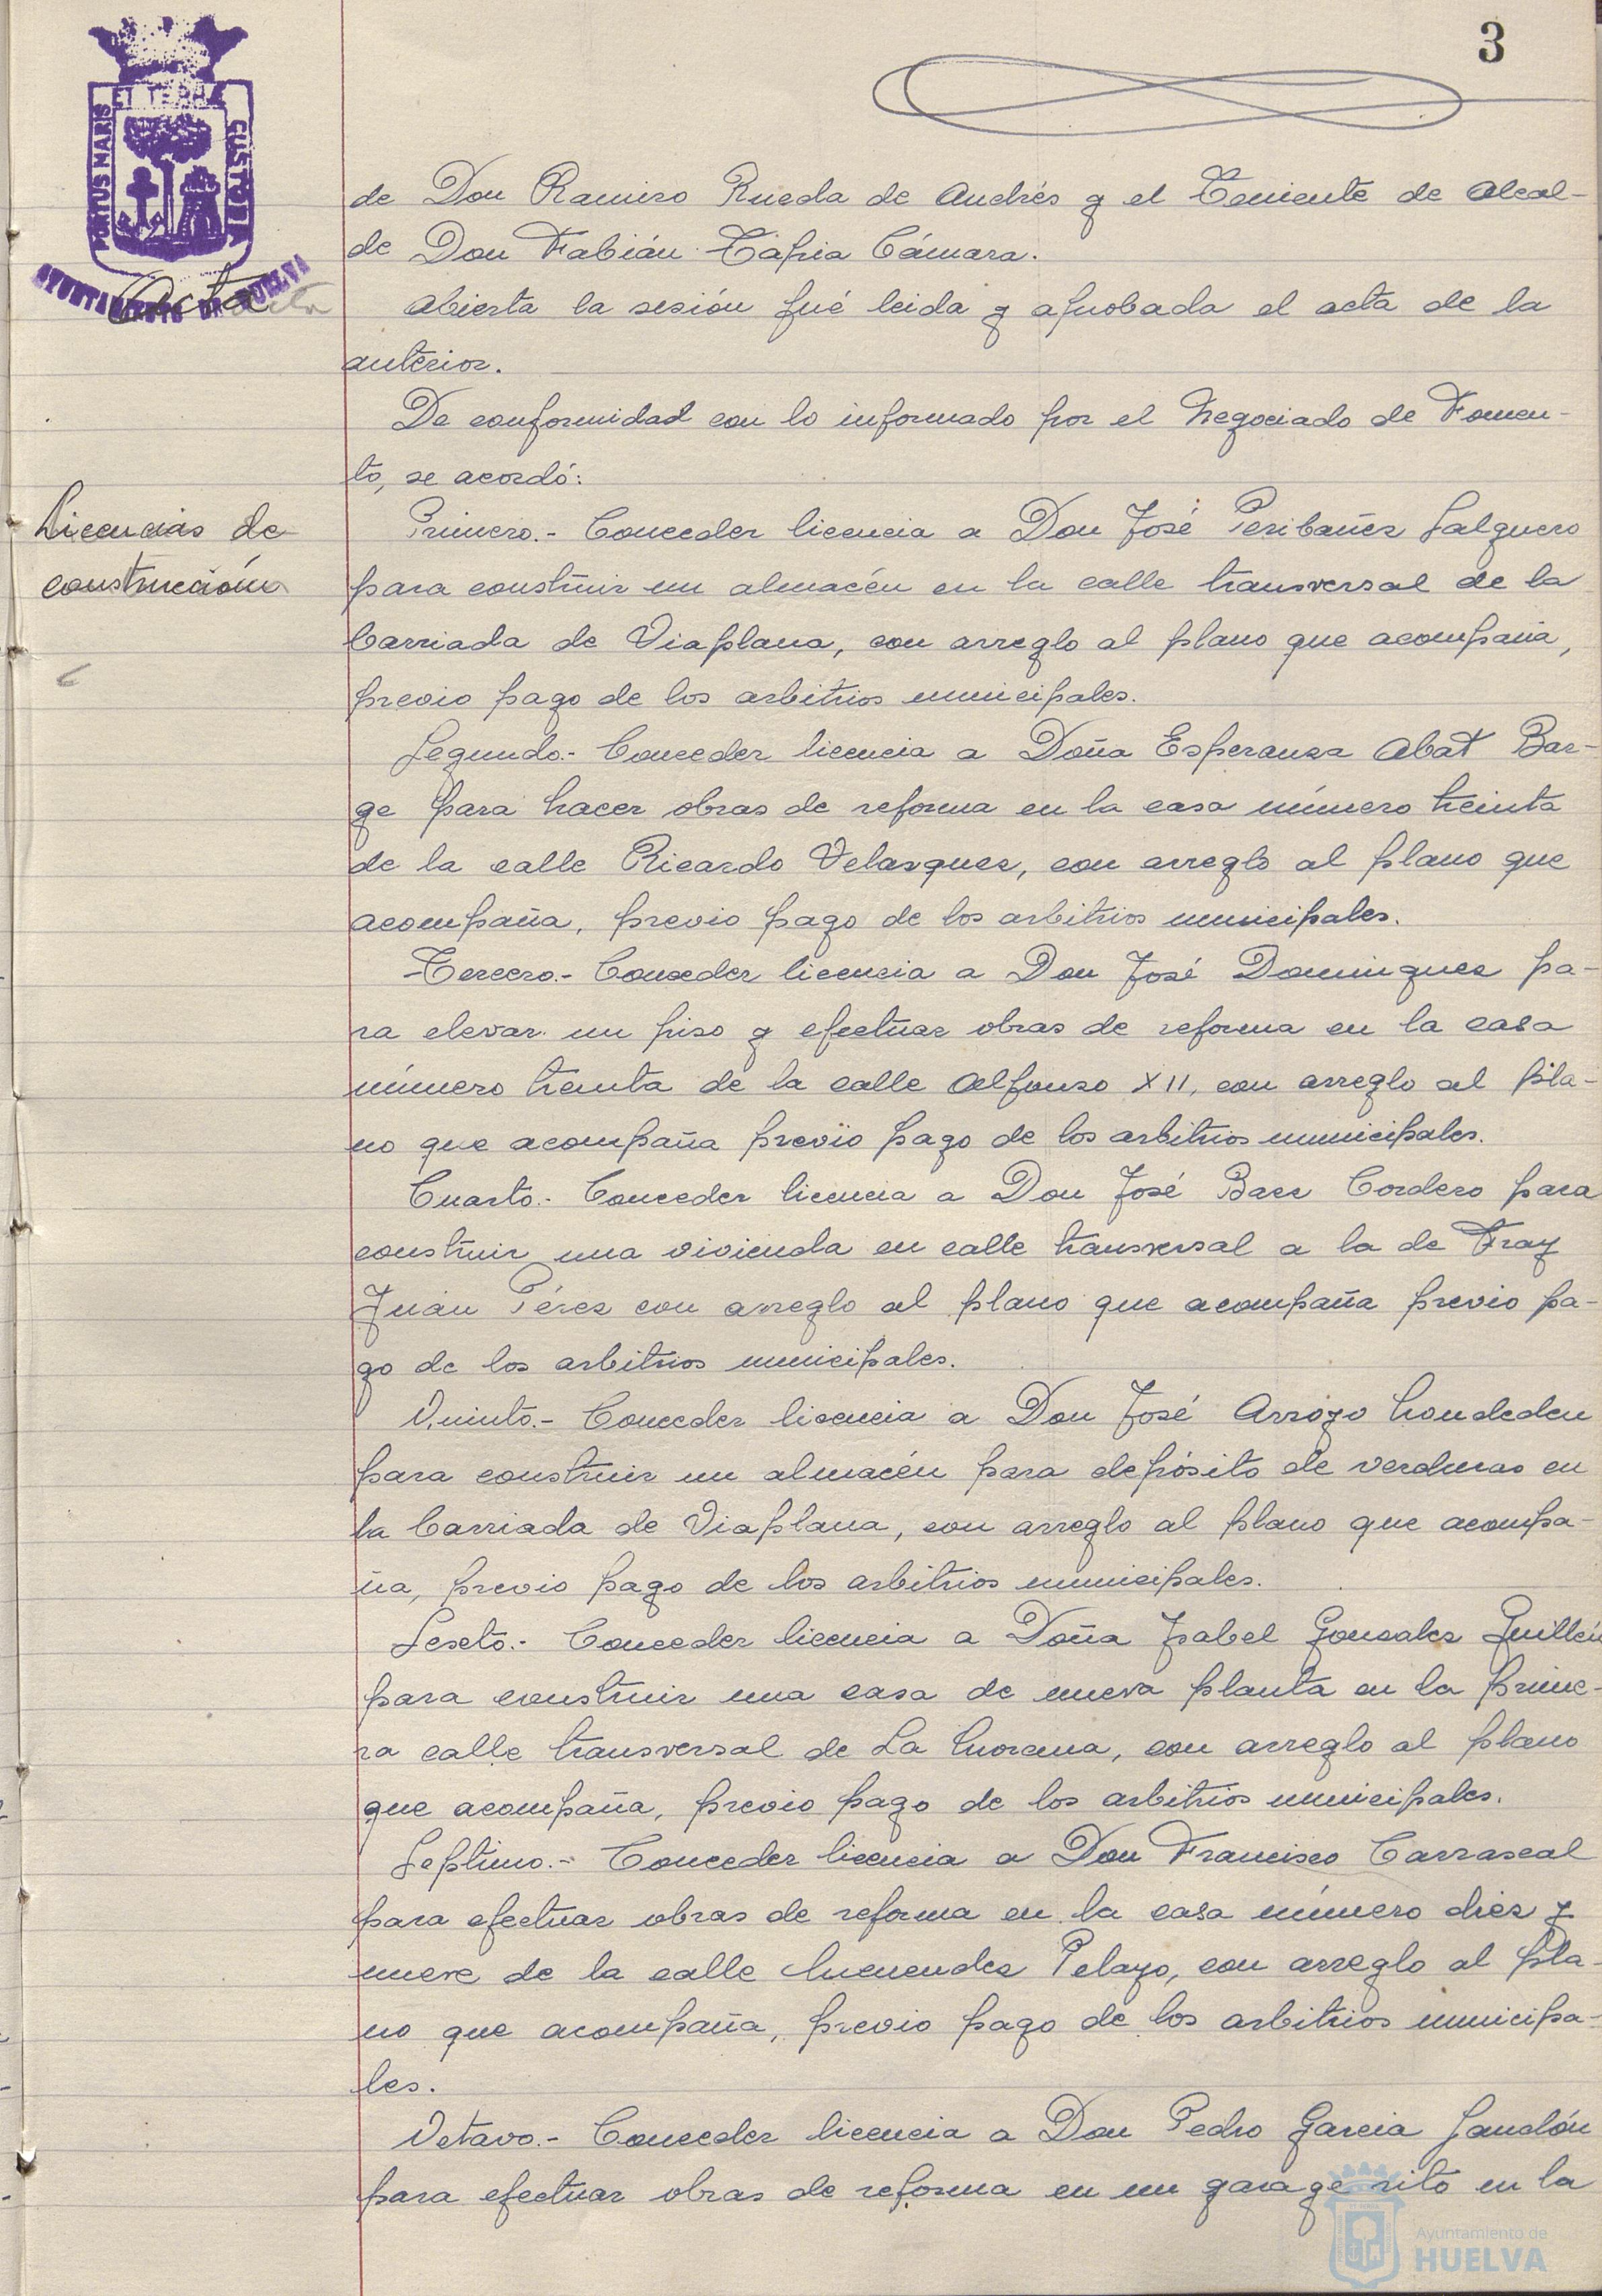 3
PORTUS MARIS ET TERRÆ CUSTODIA
AYUNTAMIENTO DE HUELVA
de Don Ramiro Rueda de Andrés y el Teniente de Alcal-
de Don Fabián Tapia Cámara.
Acta
Abierta la sesión fué leida y aprobada el acta de la
anterior.
De conformidad con lo informado por el Negociado de Fomen-
to, se acordó:
Licencias de
construcción
Primero.- Conceder licencia a Don José Peribañez Salguero
para construir un almacén en la calle transversal de la
barriada de Viaplana, con arreglo al plano que acompaña,
previo pago de los arbitrios municipales.
Segundo.- Conceder licencia a Doña Esperanza Abat Bar-
ge para hacer obras de reforma en la casa número treinta
de la calle Ricardo Velazquez, con arreglo al plano que
acompaña, previo pago de los arbitrios municipales.
Tercero.- Conceder licencia a Don José Dominguez pa-
ra elevar un piso y efectuar obras de reforma en la casa
número treinta de la calle Alfonso XII, con arreglo al pla-
no que acompaña previo pago de los arbitrios municipales.
Cuarto.- Conceder licencia a Don José Baez Cordero para
construir una vivienda en calle transversal a la de Fray
Juan Pérez con arreglo al plano que acompaña previo pa-
go de los arbitrios municipales.
Quinto.- Conceder licencia a Don José Arroyo
para construir un almacén para depósito de verduras en
la barriada de Viaplana, con arreglo al plano que acompa-
ña, previo pago de los arbitrios municipales.
Sexto.- Conceder licencia a Doña Isabel Gonzalez Guillén
para construir una casa de nueva planta en la prime-
ra calle transversal de La Morana, con arreglo al plano
que acompaña, previo pago de los arbitrios municipales.
Septimo.- Conceder licencia a Don Francisco Carrascal
para efectuar obras de reforma en la casa número diez y
nueve de la calle Menendez Pelayo, con arreglo al pla-
no que acompaña, previo pago de los arbitrios municipa-
les.
Octavo.- Conceder licencia a Don Pedro Garcia Jandón
para efectuar obras de reforma en un garage sito en la
Ayuntamiento de
HUELVA